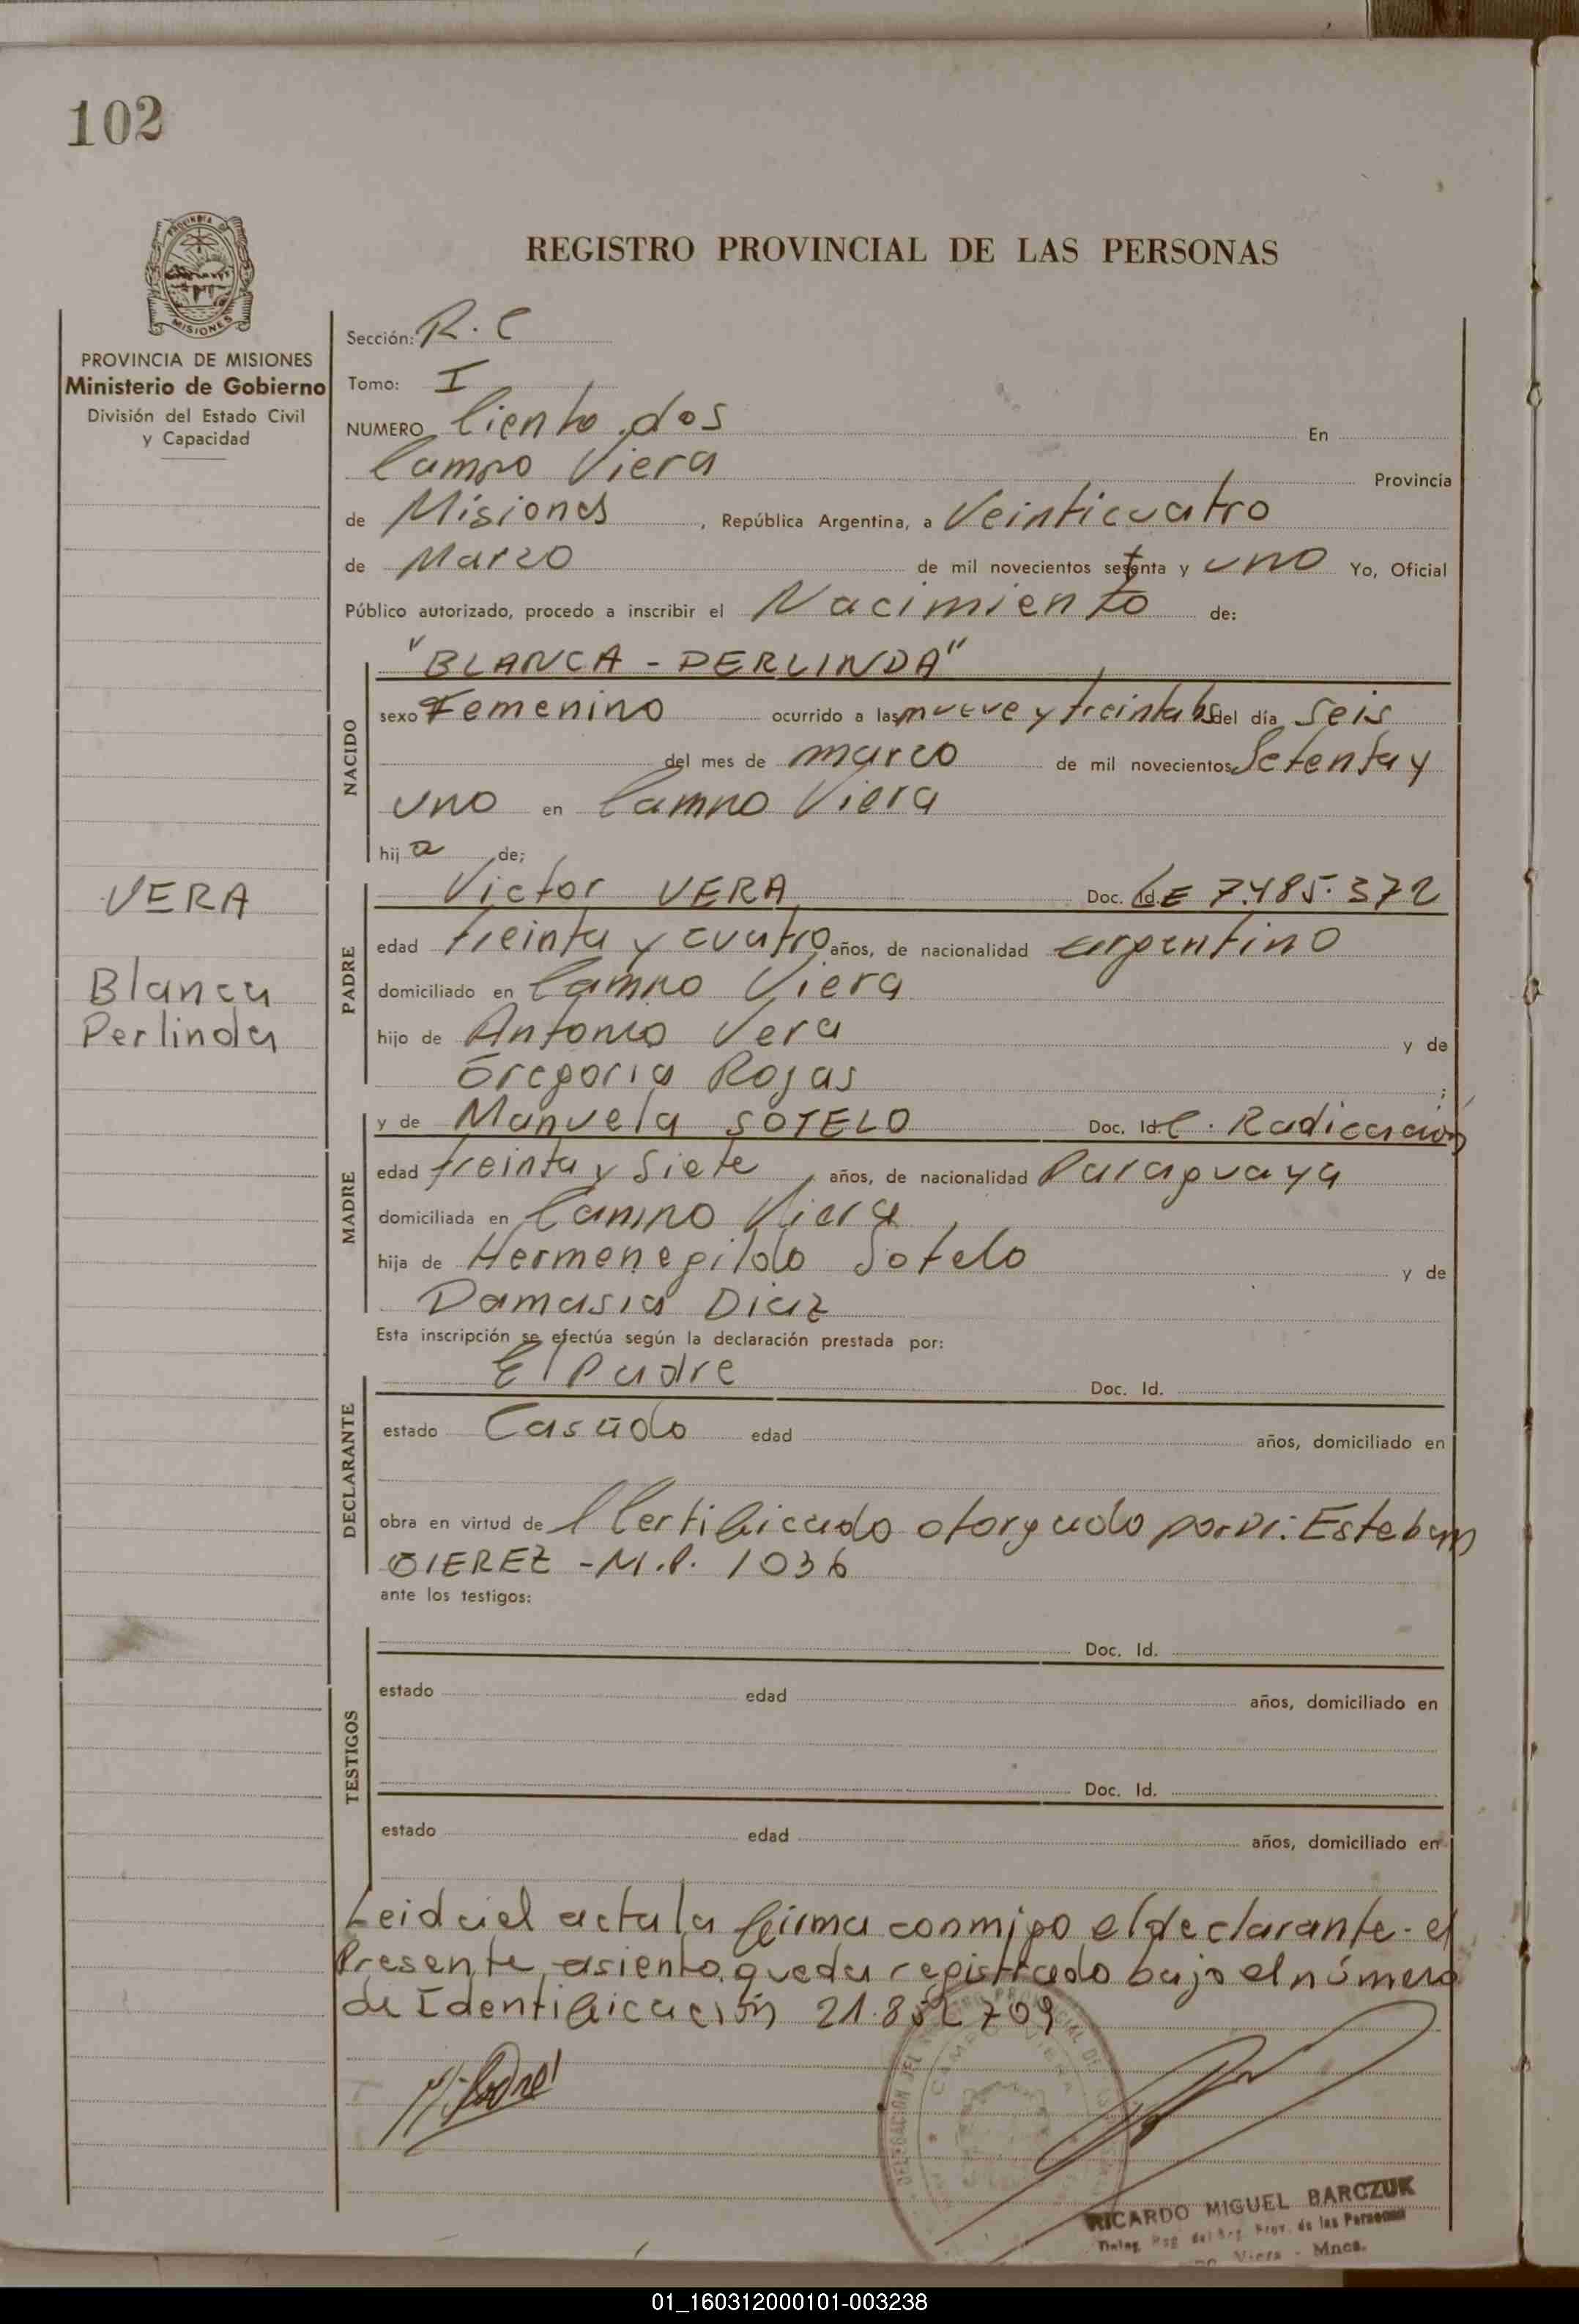 102
PROVINCIA DE MISIONES
Ministerio de Gobierno
División del Estado Civil
y Capacidad
REGISTRO PROVINCIAL DE LAS PERSONAS
Sección: R. C
Tomo: I
NUMERO Ciento dos En
Campo Viera Provincia
de Misiones, República Argentina, a Veinticuatro
de Marzo de mil novecientos setenta y uno Yo, Oficial
Público autorizado, procedo a inscribir el Nacimiento de:
"BLANCA - PERLINDA"
NACIDO
sexo Femenino ocurrido a las nueve y treinta hs del día seis
del mes de marzo de mil novecientos Setenta y
uno en Campo Viera
hij a de;
VERA
Blanca
Perlinda
PADRE
Victor VERA Doc. Id. LE 7.485.372
edad treinta y cuatro años, de nacionalidad argentino
domiciliado en Campo Viera
hijo de Antonio Vera y de
Gregoria Rojas ;
MADRE
y de Manuela SOTELO Doc. Id. C. Radicación
edad treinta y Siete años, de nacionalidad Paraguaya
domiciliada en Campo Viera
hija de Hermenegildo Sotelo y de
Damasia Diaz
Esta inscripción se efectúa según la declaración prestada por:
DECLARANTE
El Padre Doc. Id.
estado Casado edad años, domiciliado en
obra en virtud de Certificado otorgado por Dr: Esteban
- M.P. 1036
ante los testigos:
TESTIGOS
Doc. Id.
estado edad años, domiciliado en
Doc. Id.
estado edad años, domiciliado en
Leida el acta la firma conmigo el declarante - el
Presente asiento queda registrado bajo el número
de Identificación 21.852709
RICARDO MIGUEL BARCZUK
Prov. de las Personas
Viera - Mnes.
01_160312000101-003238